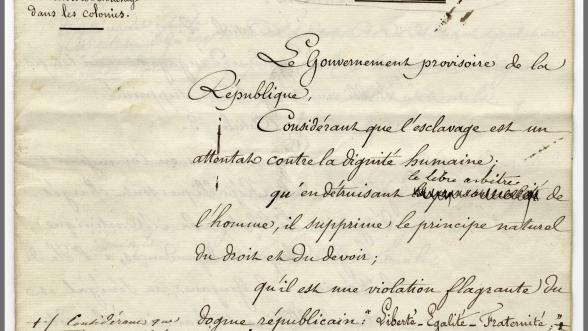 dans les colonies.
Le Gouvernement provisoire de la
République,
Considérant que l'esclavage est un
attentat contre la dignité humaine;
le libre arbitre
qu'en détruisant de
l'homme, il supprime le principe naturel
du droit et du devoir;
qu'il est une violation flagrante du
+/ Considérant que
dogme républicain: "Liberté - Egalité - Fraternité;"